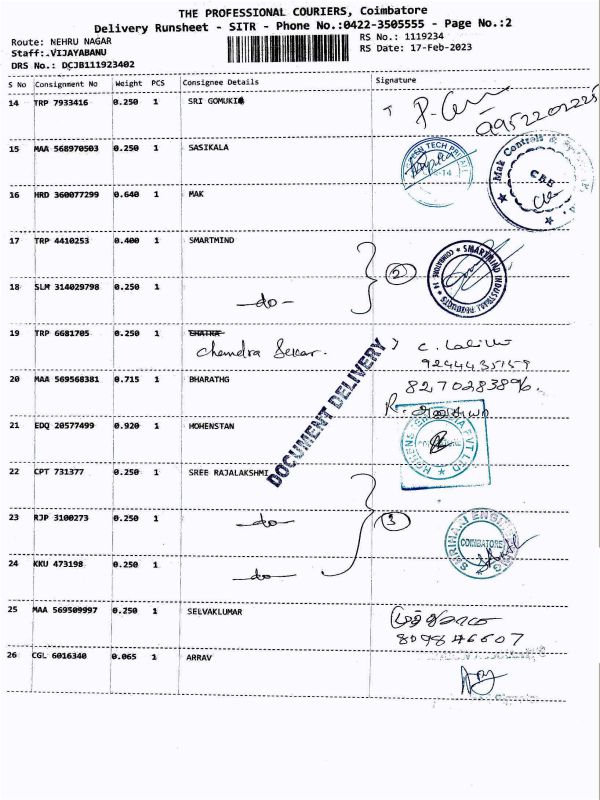 THE PROFESSIONAL COURIERS, Coimbatore
Delivery Runsheet - SITR - Phone No.:0422-3505555 - Page No.:2
Route: NEHRU NAGAR
Staff:.VIJAYABANU
DRS No.: DCJB111923402
RS No.: 1119234
RS Date: 17-Feb-2023
S No Consignment No Weight PCS Consignee Details Signature
14 TRP 7933416 0.250 1 SRI GOMUKI
09952202225
15 MAA 568970503 0.250 1 SASIKALA
Mak Controls &
CBE
16 HRD 360077299 0.640 1 MAK
17 TRP 4410253 0.400 1 SMARTMIND
SMARTMIND INDUSTRIAL PRODUCTS * COIMBATORE
2
18 SLM 314029798 0.250 1
-do-
19 TRP 6681705 0.250 1 CHATRA
Chandra Sekar.
9244435159
20 MAA 569568381 0.715 1 BHARATHG
8270283896.
DOCUMENT DELIVERY
21 EDQ 20577499 0.920 1 HOHENSTAN
PVT LTD
22 CPT 731377 0.250 1 SREE RAJALAKSHMI
23 RJP 3100273 0.250 1
-do-
3
COIMBATORE
24 KKU 473198 0.250 1
-do-
25 MAA 569509997 0.250 1 SELVAKLUMAR
26 CGL 6016340 0.065 1 ARRAV